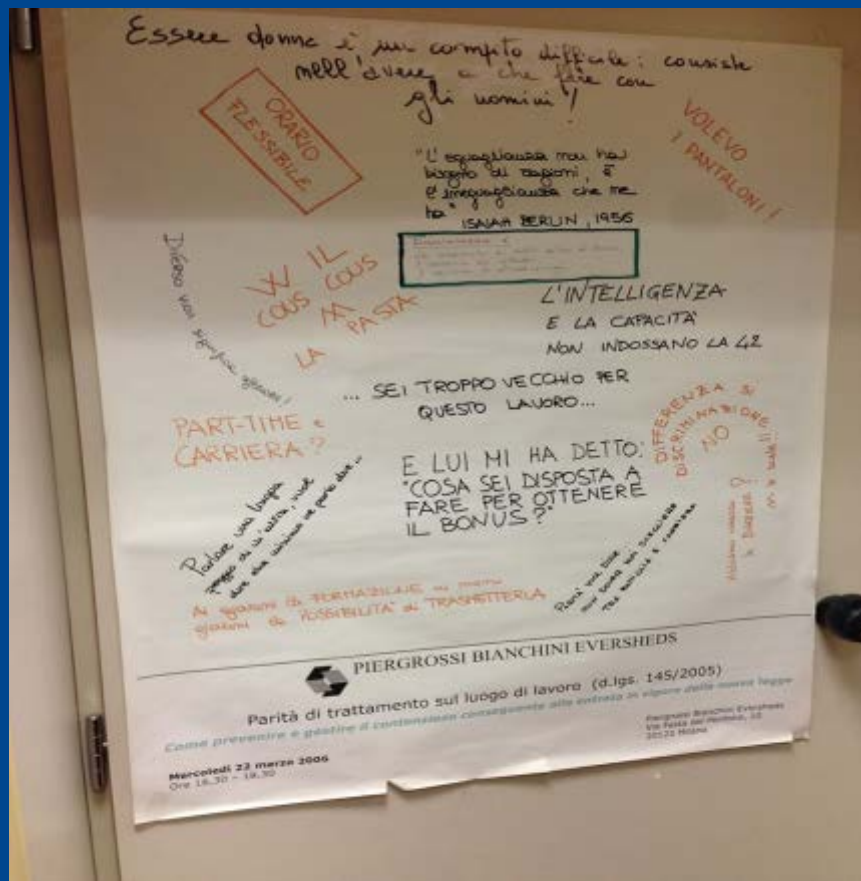 Essere donna è un compito difficile: consiste
nell'avere a che fare con
gli uomini!
ORARIO
FLESSIBILE
VOLEVO
I PANTALONI!
"L'eguaglianza non ha
bisogno di ragioni, è
l'ineguaglianza che ne
ha"
ISAIAH BERLIN, 1956
W IL
COUS COUS
M
LA PASTA
Diverso non significa
L'INTELLIGENZA
E LA CAPACITÀ
NON INDOSSANO LA 42
... SEI TROPPO VECCHIO PER
QUESTO LAVORO...
PART-TIME e
CARRIERA?
DIFFERENZA SI
DISCRIMINAZIONE
NO
E LUI MI HA DETTO:
"COSA SEI DISPOSTA A
FARE PER OTTENERE
IL BONUS?"
Parlare una lingua
peggio di un'altra, vuol
dire che
di FORMAZIONE
POSSIBILITÀ di TRASMETTERLA
PIERGROSSI BIANCHINI EVERSHEDS
Parità di trattamento sul luogo di lavoro (d.lgs. 145/2005)
Come prevenire e gestire il contenzioso conseguente alla entrata in vigore della nuova legge
Mercoledì 22 marzo 2006
Ore 16.30 – 18.30
Piergrossi Bianchini Eversheds
20121 Milano